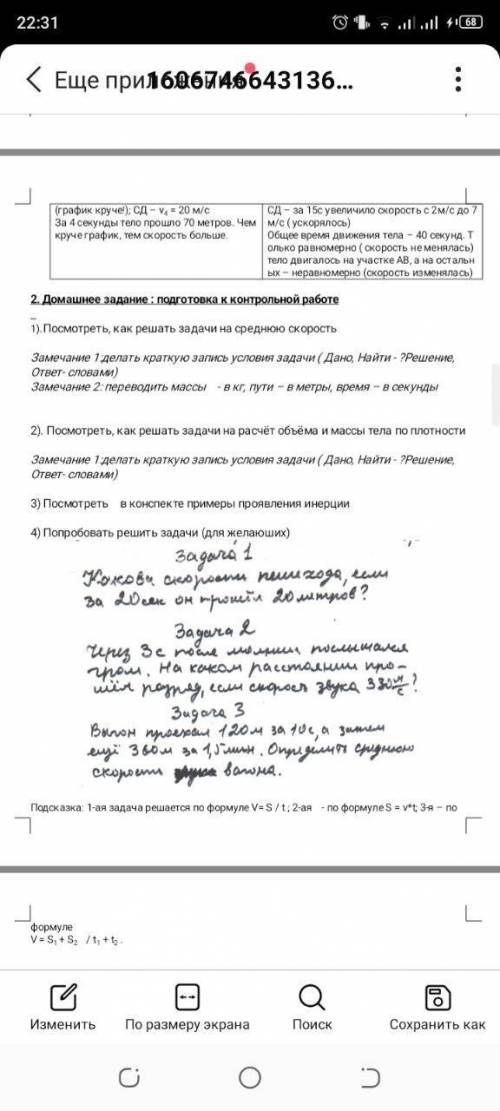 22:31
68
Еще приложения
1606746643136...
(график круче!); СД – v₄ = 20 м/с
За 4 секунды тело прошло 70 метров. Чем
круче график, тем скорость больше.
СД – за 15с увеличило скорость с 2м/с до 7
м/с ( ускорялось)
Общее время движения тела – 40 секунд. Т
олько равномерно ( скорость не менялась)
тело двигалось на участке АВ, а на остальн
ых – неравномерно (скорость изменялась)
2. Домашнее задание : подготовка к контрольной работе
1).Посмотреть, как решать задачи на среднюю скорость
Замечание 1:делать краткую запись условия задачи ( Дано, Найти - ?Решение,
Ответ- словами)
Замечание 2: переводить массы - в кг, пути – в метры, время – в секунды
2). Посмотреть, как решать задачи на расчёт объёма и массы тела по плотности
Замечание 1:делать краткую запись условия задачи ( Дано, Найти - ?Решение,
Ответ- словами)
3) Посмотреть в конспекте примеры проявления инерции
4) Попробовать решить задачи (для желаюших)
Задача 1
Какова скорость пешехода, если
за 20сек он прошёл 20 метров?
Задача 2
Через 3с после молнии послышался
гром. На каком расстоянии про-
шёл разряд, если скорость звука 330 м/с?
Задача 3
Вагон проехал 120м за 10с, а затем
ещё 360м за 1,5 мин. Определить среднюю
скорость вагона.
Подсказка: 1-ая задача решается по формуле V= S / t ; 2-ая - по формуле S = v*t; 3-я – по
формуле
V = S₁ + S₂ / t₁ + t₂ .
Изменить
По размеру экрана
Поиск
Сохранить как